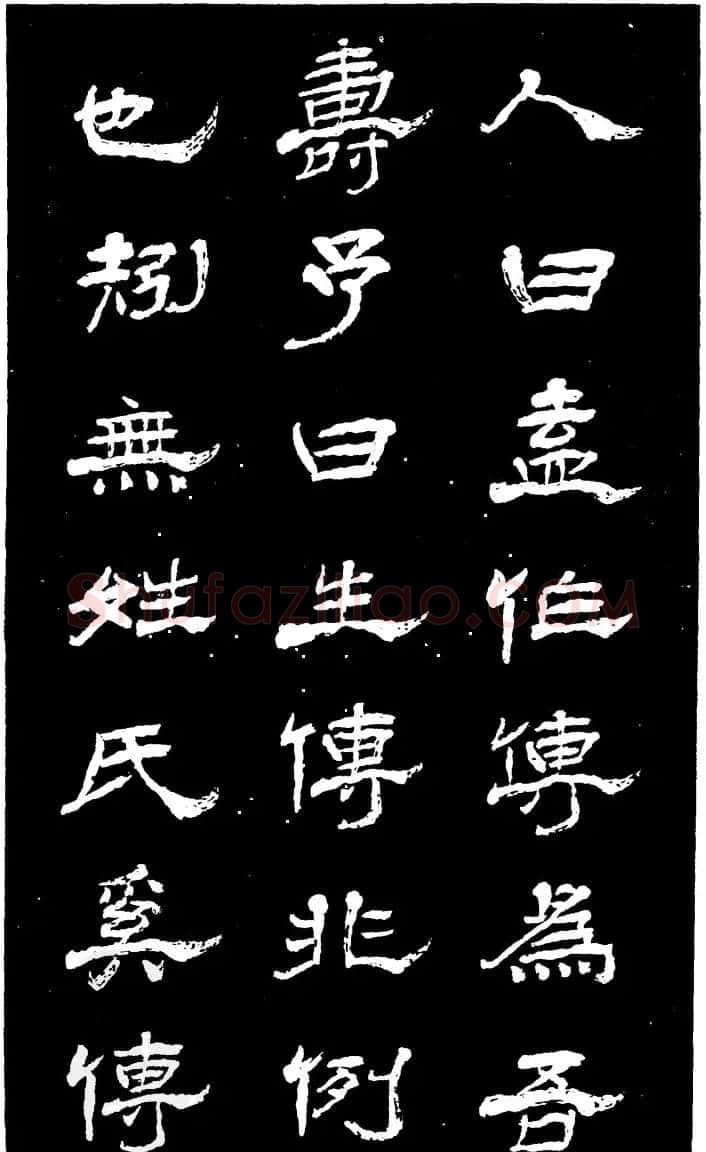 人曰盍伯傳爲吾
壽予曰生傳非例
也矧無姓氏奚傳
Shufaziliao.COM